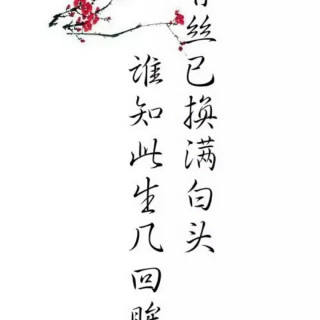 丝已换满白头
谁知此生几回眸